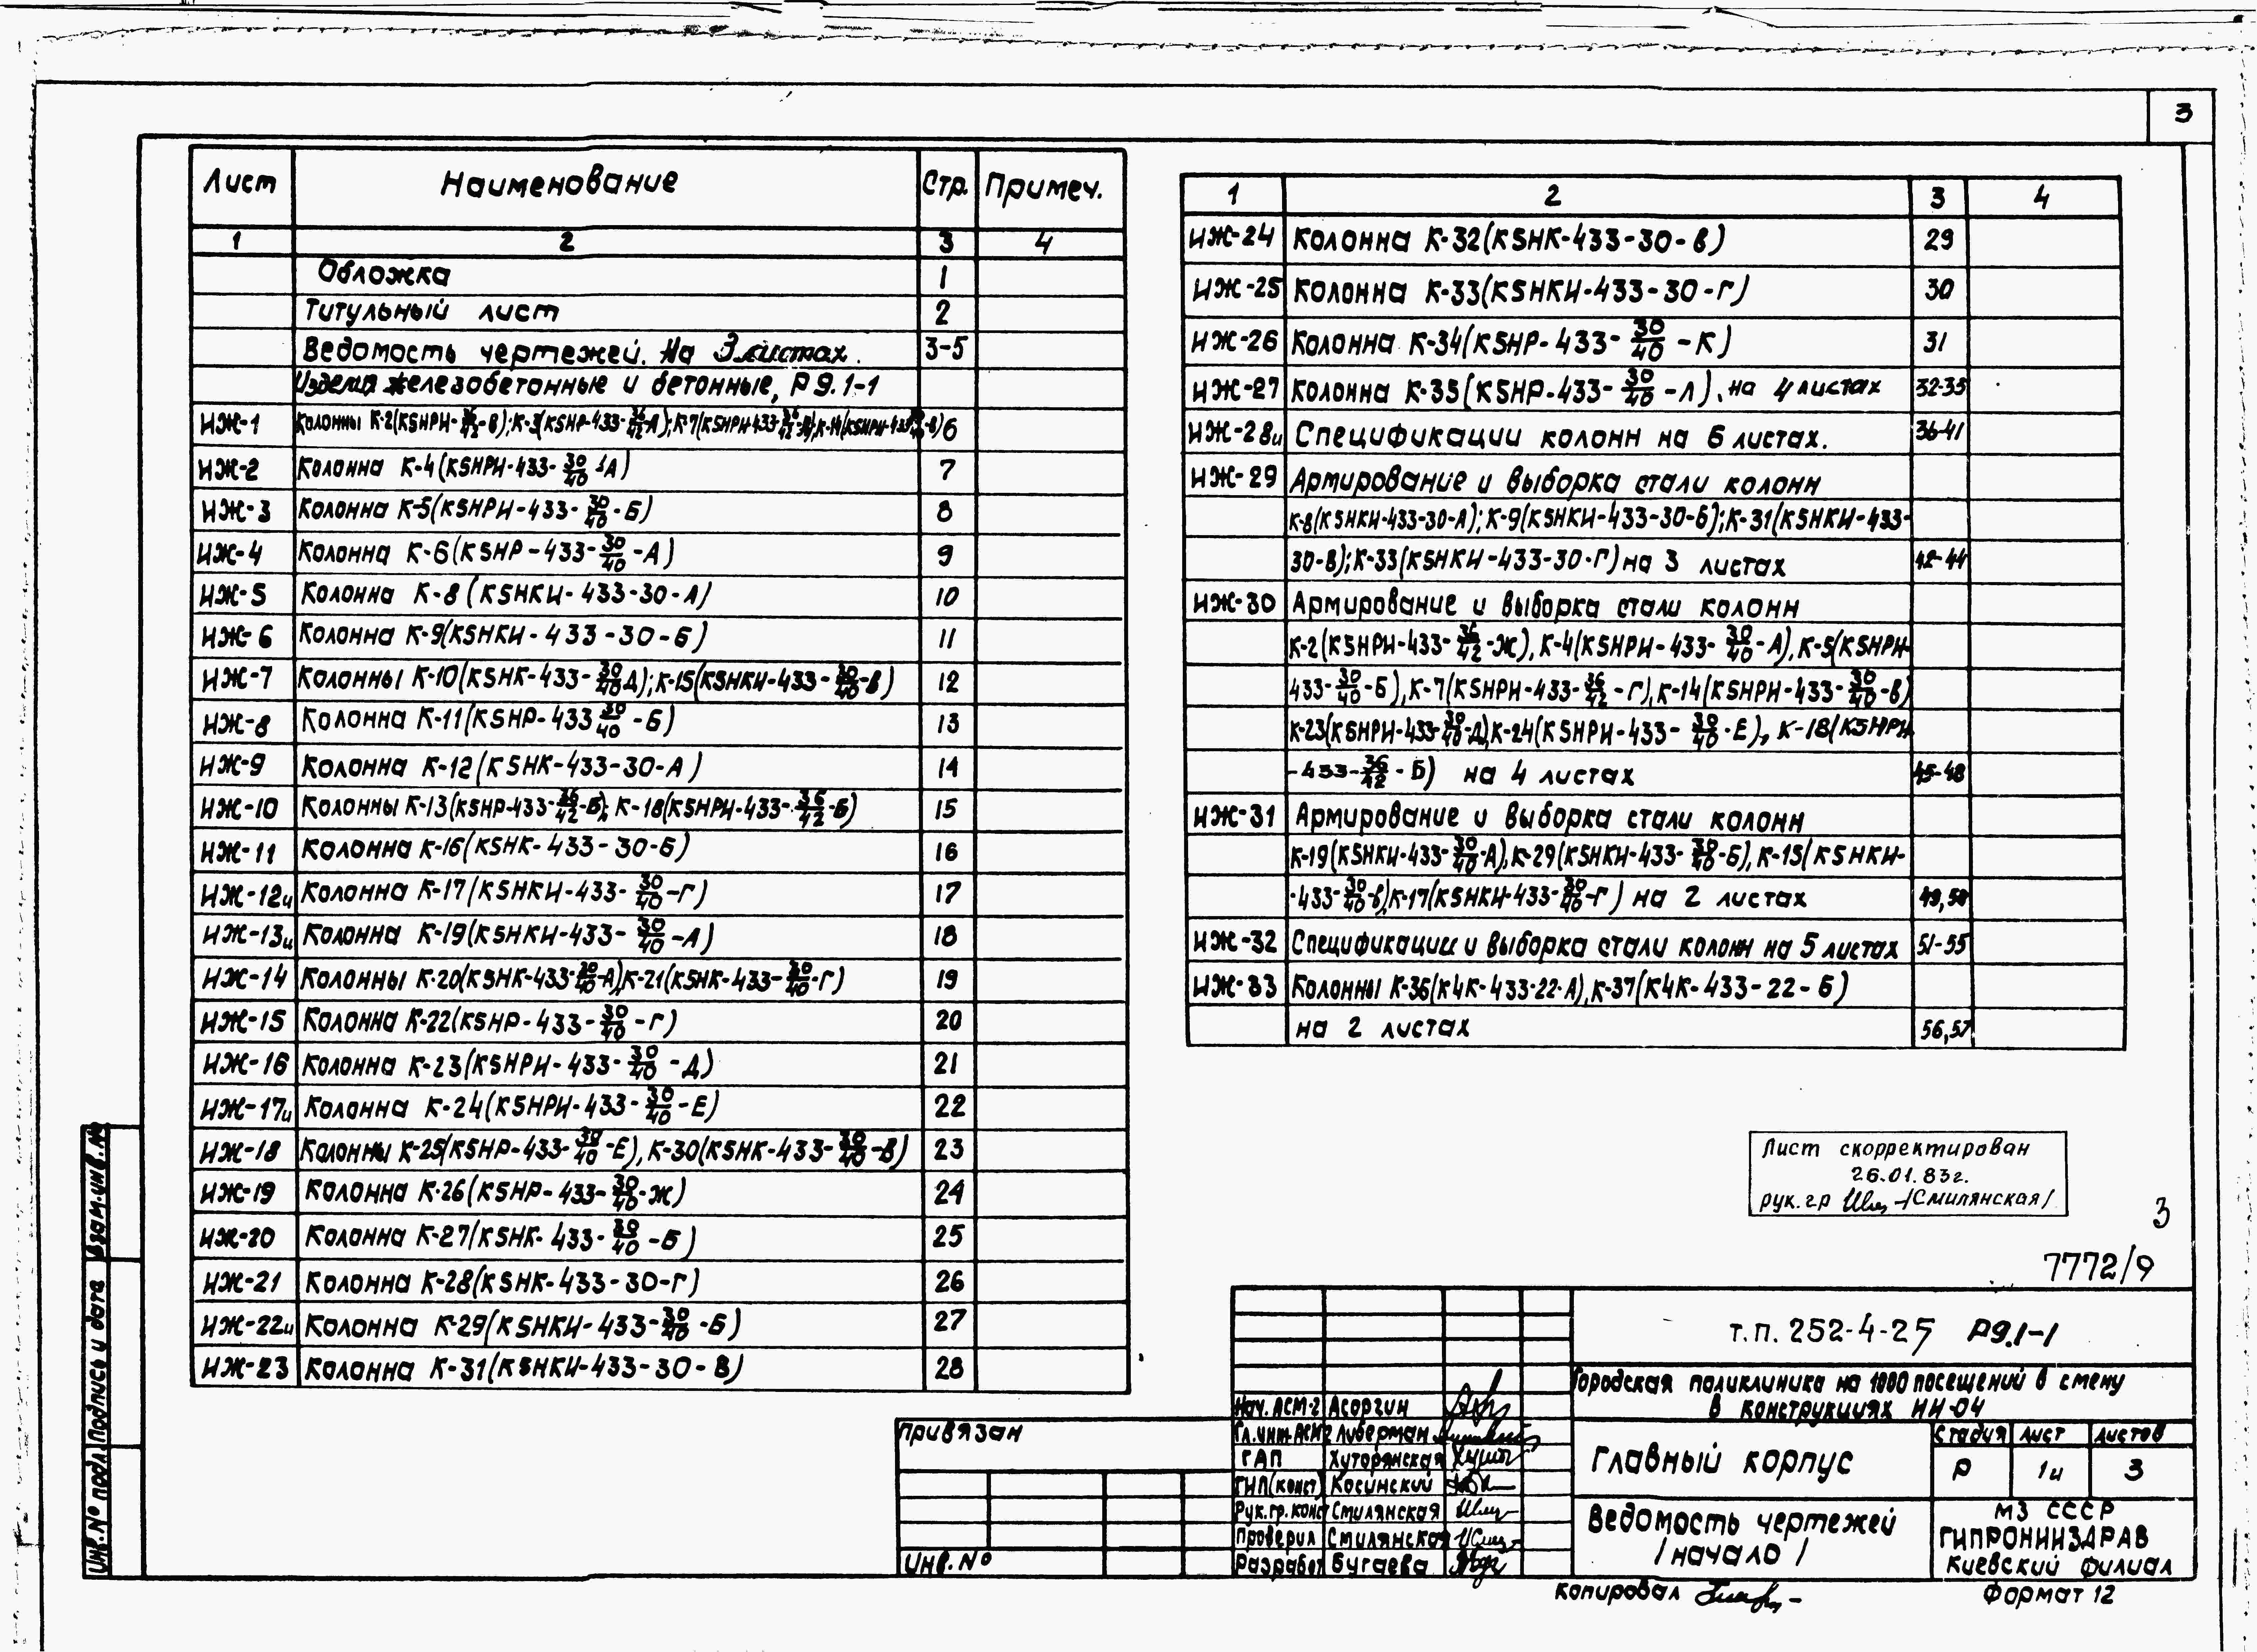 3
Лист Наименование Стр. Примеч.
1 2 3 4
Обложка 1
Титульный лист 2
Ведомость чертежей. На 3 листах. 3-5
Изделия железобетонные и бетонные, Р 9.1-1
ИЖ-1 Колонны К-2(К5НРИ- 36/42 -В); К-3(К5НР-433- 36/42 -А); К-7(К5НРИ-433- 36/42 6
ИЖ-2 Колонна К-4(К5НРИ-433- 30/40 -А) 7
ИЖ-3 Колонна К-5(К5НРИ-433- 30/40 -Б) 8
ИЖ-4 Колонна К-6(К5НР-433- 30/40 -А) 9
ИЖ-5 Колонна К-8(К5НКИ-433-30-А) 10
ИЖ-6 Колонна К-9(К5НКИ-433-30-Б) 11
ИЖ-7 Колонны К-10(К5НК-433- 30/40 Д); К-15(К5НКИ-433- 30/40 -В) 12
ИЖ-8 Колонна К-11(К5НР-433 30/40 -Б) 13
ИЖ-9 Колонна К-12(К5НК-433-30-А) 14
ИЖ-10 Колонны К-13(К5НР-433- 36/42 -Б); К-18(К5НРИ-433- 36/42 -Б) 15
ИЖ-11 Колонна К-16(К5НК-433-30-Б) 16
ИЖ-12и Колонна К-17(К5НКИ-433- 30/40 -Г) 17
ИЖ-13и Колонна К-19(К5НКИ-433- 30/40 -А) 18
ИЖ-14 Колонны К-20(К5НК-433- 30/40 -А), К-21(К5НК-433- 30/40 -Г) 19
ИЖ-15 Колонна К-22(К5НР-433- 30/40 -Г) 20
ИЖ-16 Колонна К-23(К5НРИ-433- 30/40 -Д) 21
ИЖ-17и Колонна К-24(К5НРИ-433- 30/40 -Е) 22
ИЖ-18 Колонны К-25(К5НР-433- 30/40 -Е), К-30(К5НК-433- 30/40 -В) 23
ИЖ-19 Колонна К-26(К5НР-433- 30/40 -Ж) 24
ИЖ-20 Колонна К-27(К5НК-433- 30/40 -Б) 25
ИЖ-21 Колонна К-28(К5НК-433-30-Г) 26
ИЖ-22и Колонна К-29(К5НКИ-433- 30/40 -Б) 27
ИЖ-23 Колонна К-31(К5НКИ-433-30-В) 28
1 2 3 4
ИЖ-24 Колонна К-32(К5НК-433-30-В) 29
ИЖ-25 Колонна К-33(К5НКИ-433-30-Г) 30
ИЖ-26 Колонна К-34(К5НР-433- 30/40 -К) 31
ИЖ-27 Колонна К-35(К5НР-433- 30/40 -Л). на 4 листах 32-35
ИЖ-28и Спецификации колонн на 6 листах. 36-41
ИЖ-29 Армирование и выборка стали колонн
К-8(К5НКИ-433-30-А); К-9(К5НКИ-433-30-Б); К-31(К5НКИ-433-
30-В); К-33(К5НКИ-433-30-Г) на 3 листах 42-44
ИЖ-30 Армирование и выборка стали колонн
К-2(К5НРИ-433- 36/42 -Ж), К-4(К5НРИ-433- 30/40 -А), К-5(К5НРИ-
433- 30/40 -Б), К-7(К5НРИ-433- 36/42 -Г), К-14(К5НРИ-433- 30/40 -В)
К-23(К5НРИ-433- 30/40 -Д), К-24(К5НРИ-433- 30/40 -Е), К-18(К5НРИ
-433- 36/42 -Б) на 4 листах 45-48
ИЖ-31 Армирование и выборка стали колонн
К-19(К5НКИ-433- 30/40 -А), К-29(К5НКИ-433- 30/40 -Б), К-15(К5НКИ-
-433- 30/40 -В), К-17(К5НКИ-433- 30/40 -Г) на 2 листах 49,50
ИЖ-32 Спецификации и выборка стали колонн на 5 листах 51-55
ИЖ-33 Колонны К-36(К4К-433-22-А), К-37(К4К-433-22-Б)
на 2 листах 56,57
Лист скорректирован
26.01.83г.
рук. гр /Смилянская/
3
7772/9
т.п. 252-4-25 Р9.1-1
Городская поликлиника на 1000 посещений в смену
в конструкциях ИИ-04
Главный корпус
Стадия Лист Листов
Р 1и 3
Ведомость чертежей
/начало/
МЗ СССР
ГИПРОНИИЗДРАВ
Киевский филиал
Нач. АСМ-2 Асоргин
Гл.инж.АСМ2 Либерман
ГАП Хуторянская
ГИП(конст) Косинский
Рук.гр.конс Смилянская
Проверил Смилянская
Разработ Бугаева
Привязан
Инв.№
Копировал
Формат 12
Взам.инв.№
Подпись и дата
Инв.№ подл.